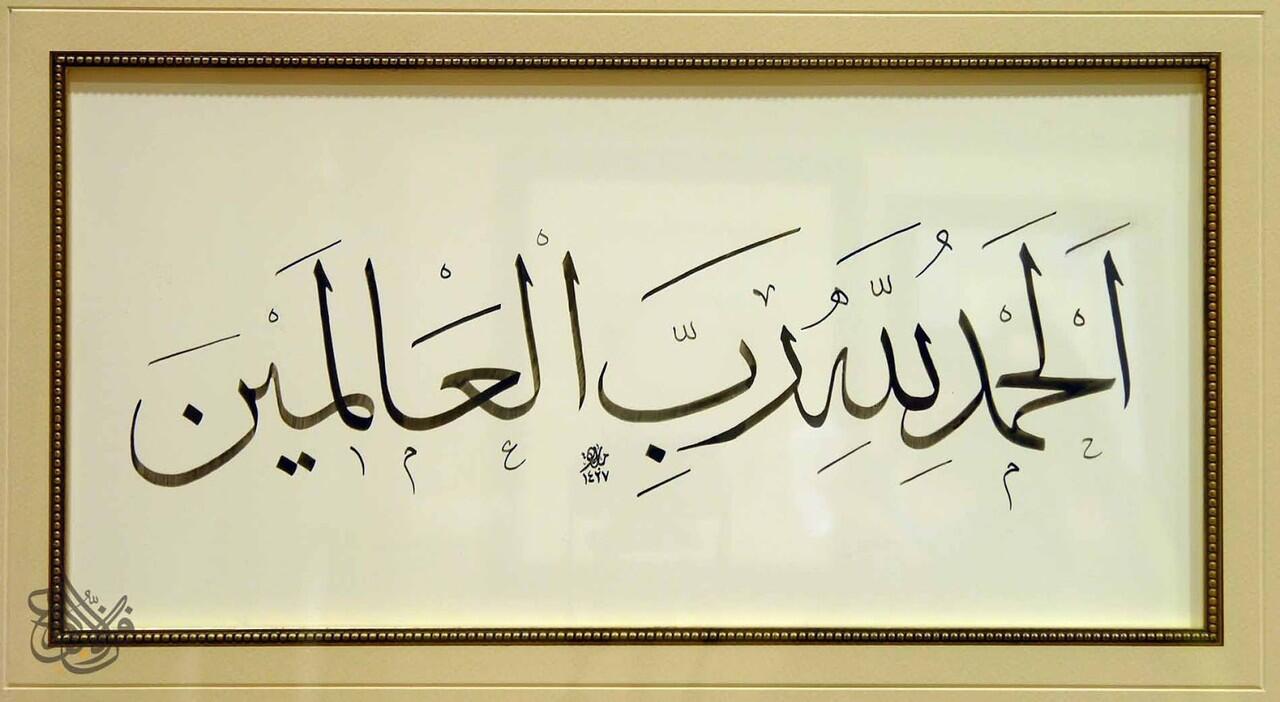 اَلْحَمْدُ لِلّٰهِ رَبِّ الْعَالَمْيْنَ
١٤٢٧